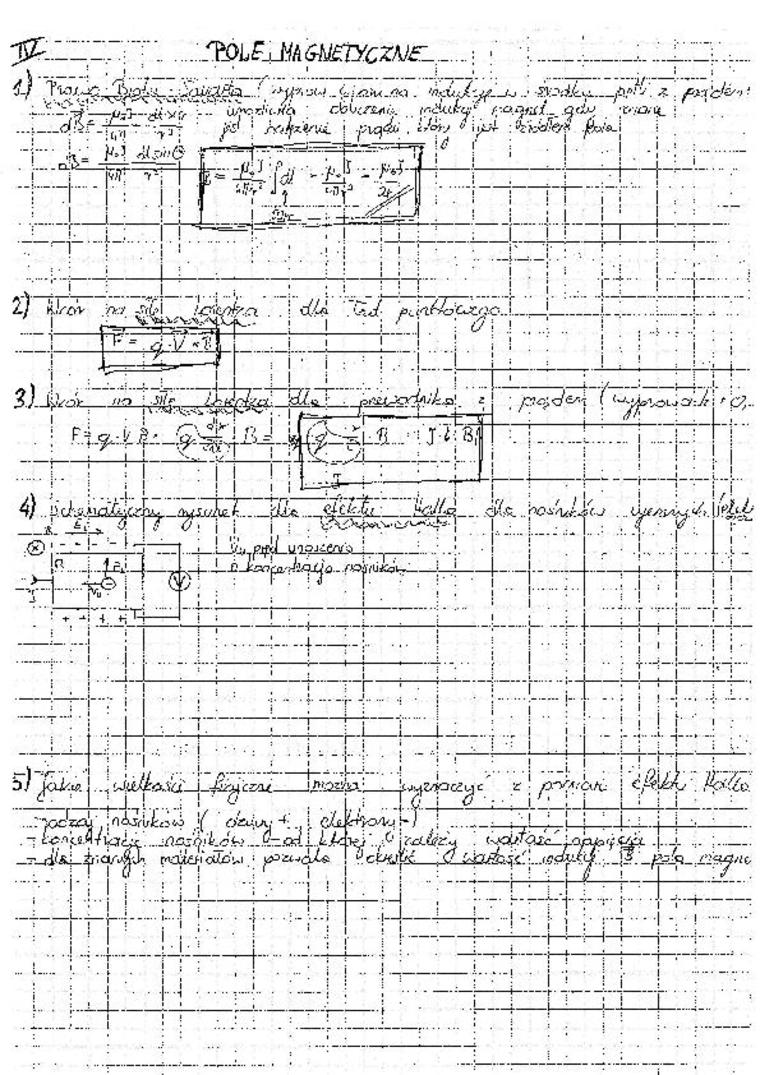 IV POLE MAGNETYCZNE
1) Prawo Biota-Savarta (wyprow. wzór na indukcję w środku pętli z prądem:
umożliwia obliczenie indukcji magnet. gdy znane
jest natężenie prądu który jest źródłem pola
dB = μ₀J/4π dl×r/r²
dB = μ₀J/4π dl sinΘ/r²
B = μ₀J/4πr² ∫dl = = μ₀J/2r
2) Wzór na siłę Lorentza dla ład. punktowego
F = q·V×B
3) Wzór na siłę Lorentza dla przewodnika z prądem
F = q·V·B = q · B = q · B = J·l·B
4) Schematyczny rysunek dla efektu Halla dla nośników ujemnych
B
V
n koncentracja nośników
J
+ + + +
5) Jakie wielkości fizyczne można wyznaczyć z pomiaru efektu Halla
-rodzaj nośników (dziury + elektrony -)
-koncentrację nośników - od której zależy wartość napięcia
-dla znanych materiałów pozwala określić wartość indukcji B pola magne